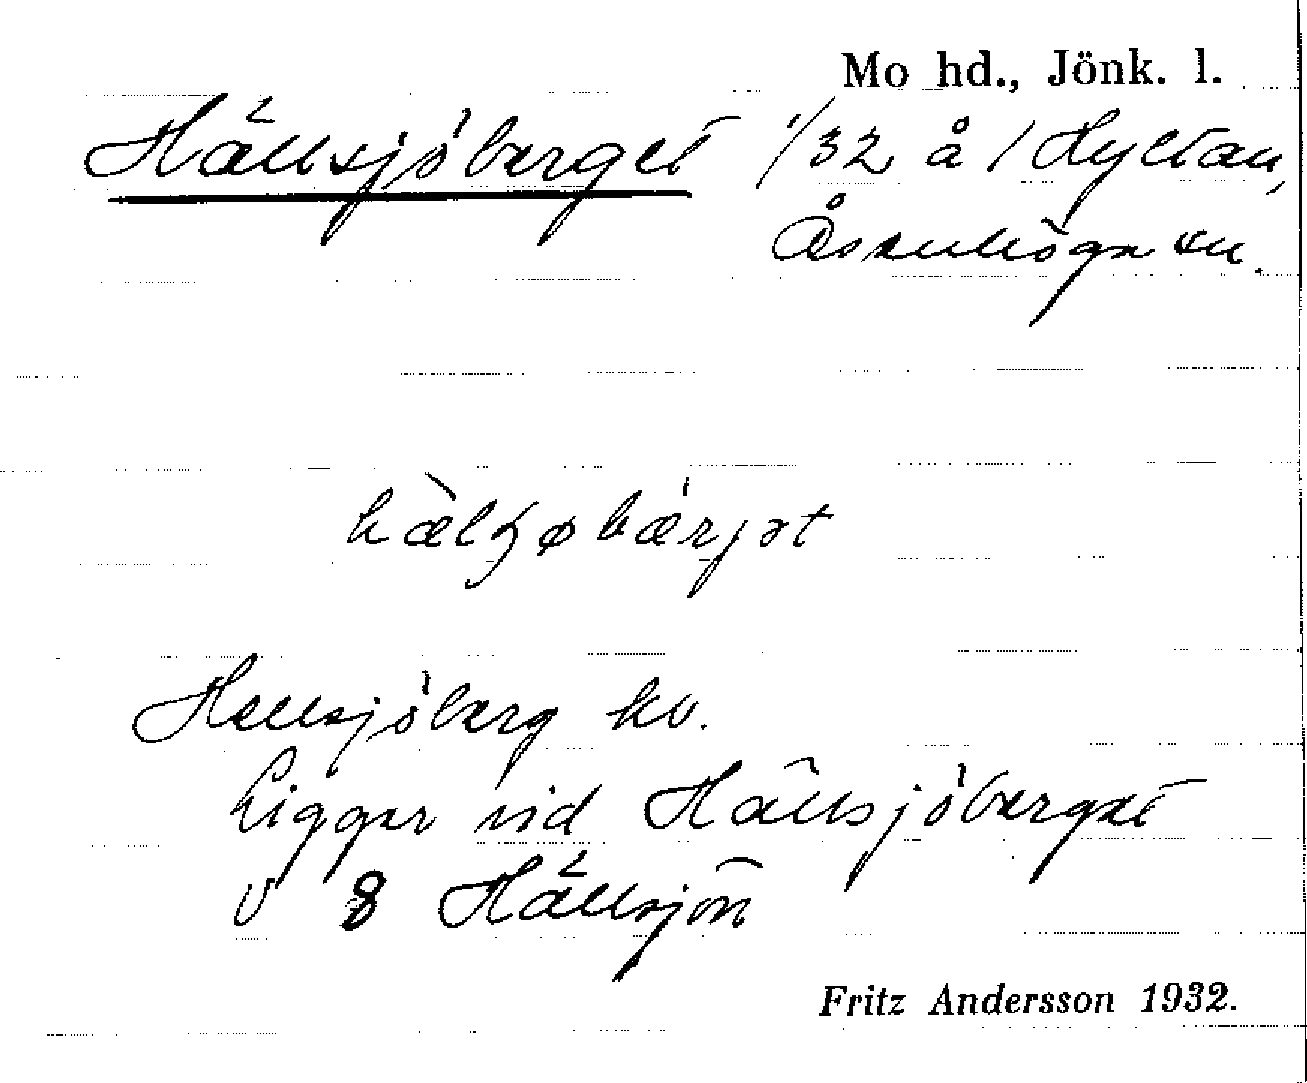 Mo hd., Jönk. l.
Hällsjöberget 1/32 å 1 Hyltan,
Åsenhöga sn.
hælɧøbærjət
Hellsjöberg kv.
Ligger vid Hällsjöberget
v 8 Hällsjön
Fritz Andersson 1932.